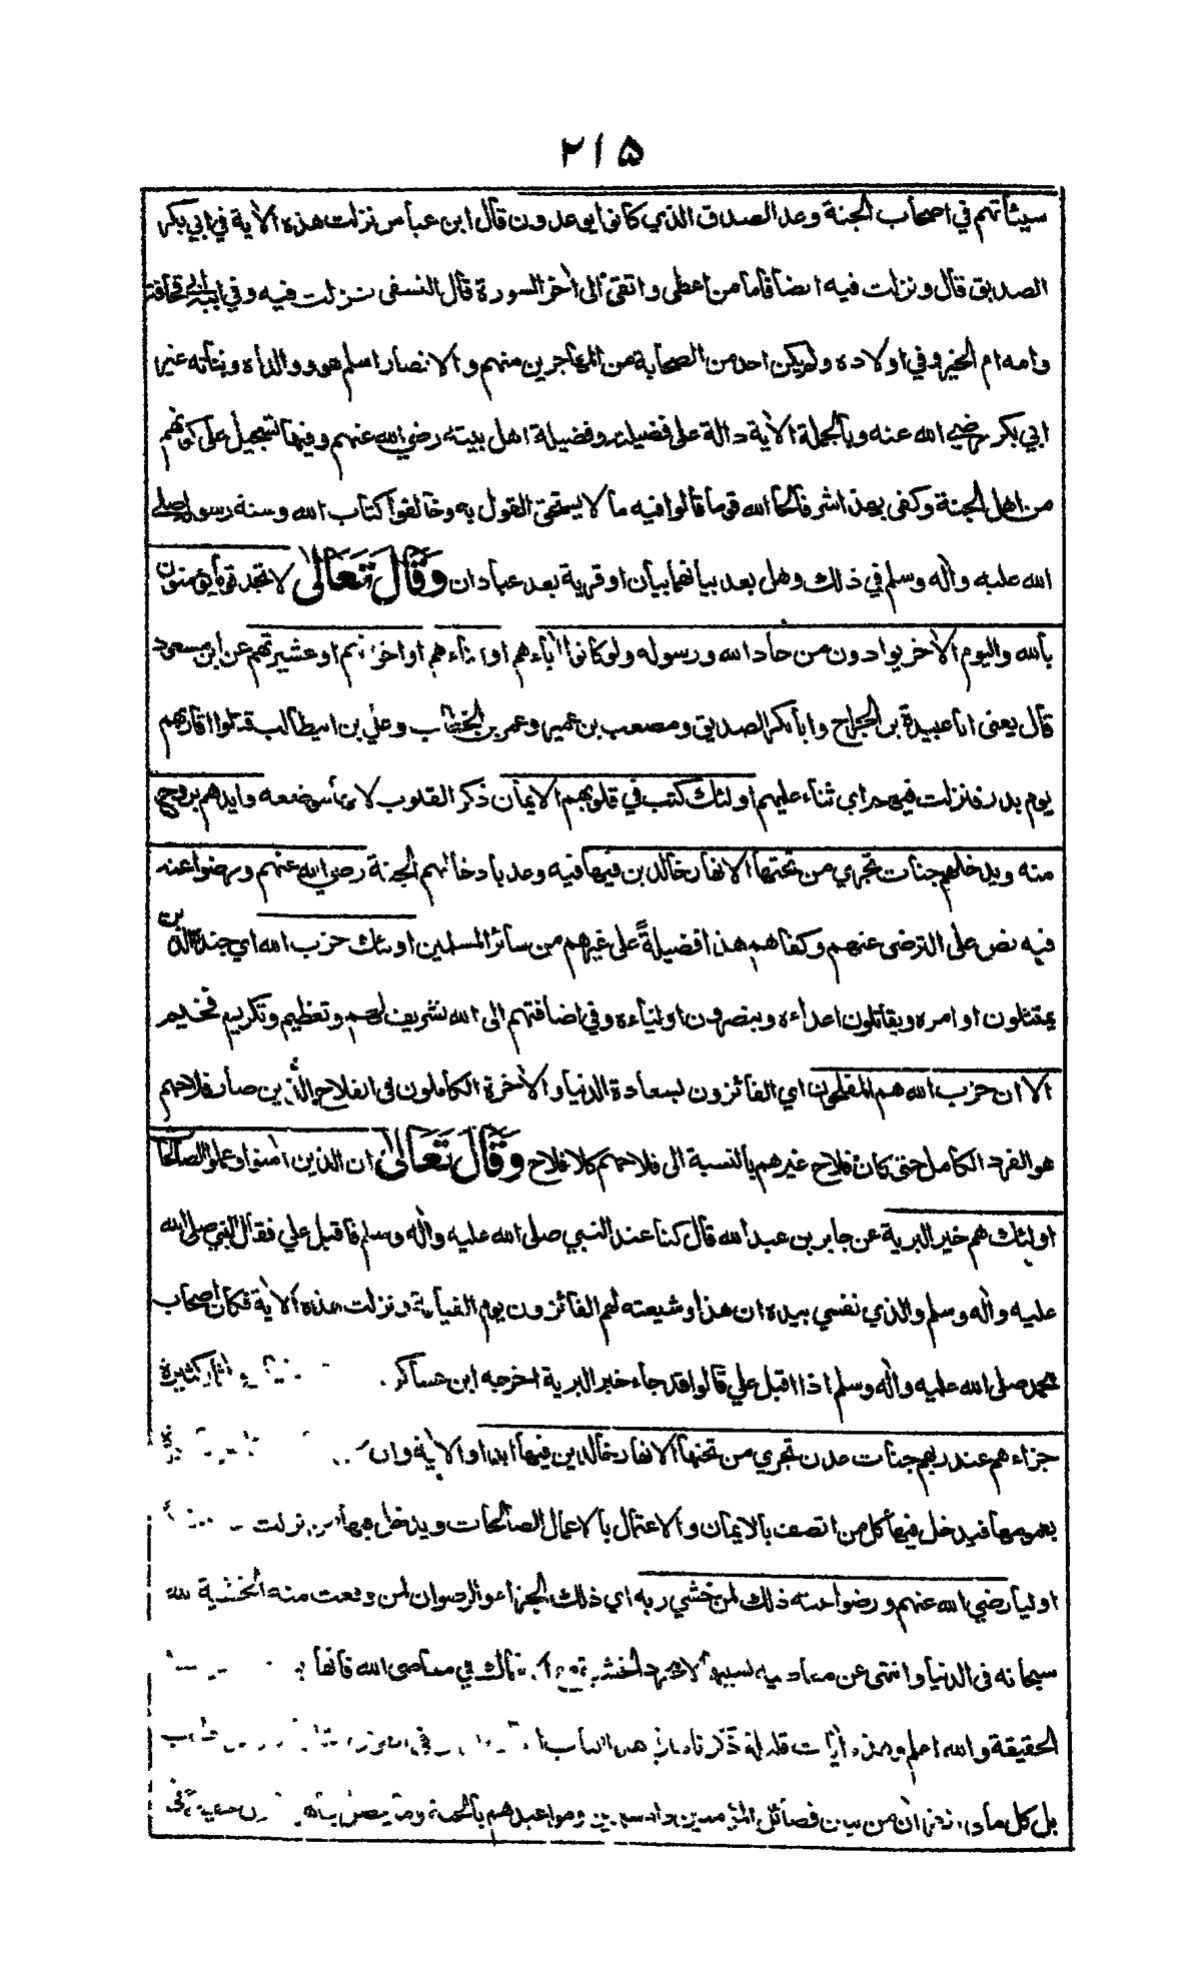 ٢١٥
سيئاتهم في اصحاب الجنة وعد الصدق الذي كانوا يوعدون قال ابن عباس نزلت هذه الاٰية في ابي بكر
الصديق قال ونزلت فيه ايضا فاما من اعطى واتقى الى اٰخر السورة قال النسفي نزلت فيه وفي ابيه ابي قحافة
وامه ام الخير وفي اولاده ولم يكن احد من الصحابة من المهاجرين منهم والانصار اسلم هو ووالداه وبناته غير
ابي بكر رضي الله عنه وبالجملة الاٰية دالة على فضيلته وفضيلة اهل بيته رضي الله عنهم وفيها تسجيل على كونهم
من اهل الجنة وكفى بهذا شرفا لحا الله قوما قالوا فيه ما لا يستحق القول به وخالفوا كتاب الله وسنة رسوله صلى
الله عليه واٰله وسلم في ذلك وهل بعد بيانهما بيان او قرية بعد عبادان وَقَالَ تَعَالىٰ لا تجد قوما يؤمنون
بالله واليوم الاٰخر يوادون من حاد الله ورسوله ولو كانوا اٰباءهم او ابناءهم او اخوانهم او عشيرتهم عن ابن مسعود
قال يعني ابا عبيدة بن الجراح وابا بكر الصديق ومصعب بن عمير وعمر بن الخطاب وعلي بن ابيطالب قتلوا اقاربهم
يوم بدر فنزلت فيهم اي ثناء عليهم اولئك كتب في قلوبهم الايمان ذكر القلوب لانها موضعه وايدهم بروح
منه ويدخلهم جنات تجري من تحتها الانهار خالدين فيها فيه وعد بادخالهم الجنة رضي الله عنهم ورضوا عنه
فيه نص على الترضى عنهم وكفاهم هذا فضيلةً على غيرهم من سائر المسلمين اولئك حزب الله اي جنده الذين
يمتثلون اوامره ويقاتلون اعداءه وينصرون اولياءه وفي اضافتهم الى الله تشريف لهم وتعظيم وتكريم فخيم
الا ان حزب الله هم المفلحون اي الفائزون لسعادة الدنيا والاٰخرة الكاملون في الفلاح الذين صار فلاحهم
هو الفرد الكامل حتى كان فلاح غيرهم بالنسبة الى فلاحهم كلا فلاح وَقَالَ تَعَالىٰ ان الذين اٰمنوا وعملوا الصالحات
اولئك هم خير البرية عن جابر بن عبد الله قال كنا عند النبي صلى الله عليه واٰله وسلم فاقبل علي فقال النبي صلى الله
عليه واٰله وسلم والذي نفسي بيده ان هذا وشيعته لهم الفائزون يوم القيامة ونزلت هذه الاٰية فكان اصحاب
محمد صلى الله عليه واٰله وسلم اذا اقبل علي قالوا قد جاء خير البرية اخرجه ابن عساكر كثيرة
جزاءهم عند ربهم جنات عدن تجري من تحتها الانهار خالدين فيها ابدا والاٰية وان
بعمومها فيدخل فيها كل من اتصف بالايمان والاعتمال بالاعمال الصالحات ويدخل فيها من نزلت
اوليا رضي الله عنهم ورضوا عنه ذلك لمن خشي ربه اي ذلك الجزاء والرضوان لمن وقعت منه الخشية لله
سبحانه في الدنيا وانتهى عن معاصيه لسببها لا مجرد الخشية مع في معاصي الله فانها
الحقيقة والله اعلم وهذه اٰيات قليلة ذكرناها في هذا الباب
بل كل ما في القراٰن من بيان فضائل المؤمنين ومواعيدهم بالجنة وما